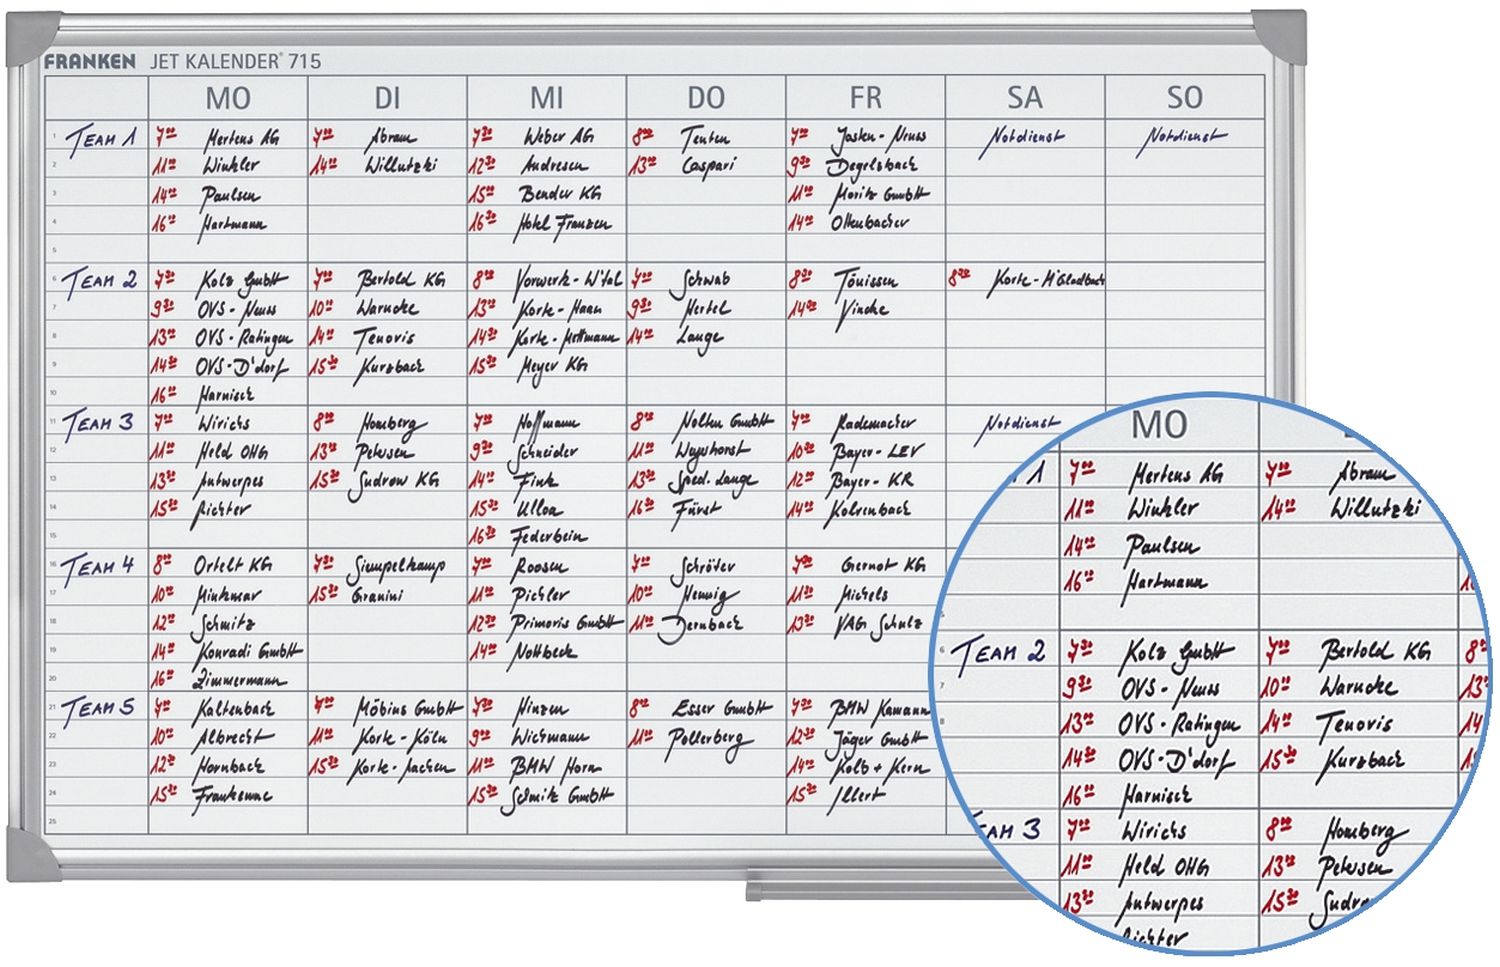 FRANKEN JET KALENDER® 715
MO DI MI DO FR SA SO
1 TEAM 1 7⁰⁰ Mertens AG 7⁰⁰ Abram 7³⁰ Weber AG 8⁰⁰ Teuten 7⁰⁰ Josten-Neuss Notdienst Notdienst
2 11⁰⁰ Winkler 14⁰⁰ Willutzki 12³⁰ Andresen 13⁰⁰ Caspari 9³⁰ Degelsback
3 14⁰⁰ Paulsen 15⁰⁰ Bender KG 11⁰⁰ Moritz GmbH
4 16⁰⁰ Hartmann 16³⁰ Hotel Franzen 14⁰⁰ Ottenbacher
5
6 TEAM 2 7³⁰ Kolz GmbH 7⁰⁰ Bertold KG 8⁰⁰ Vorwerk-W'tal 7⁰⁰ Schwab 8³⁰ Tönissen 8³⁰ Korte-M'Gladbach
7 9³⁰ OVS-Neuss 10⁰⁰ Warncke 13⁰⁰ Korte-Haan 9³⁰ Hertel 14³⁰ Vincke
8 13⁰⁰ OVS-Ratingen 14⁰⁰ Tenovis 14³⁰ Korte-Mettmann 14⁰⁰ Lange
9 14³⁰ OVS-D'dorf 15³⁰ Kurzback 15³⁰ Meyer KG
10 16⁰⁰ Harnisch
11 TEAM 3 7⁰⁰ Wirichs 8⁰⁰ Homberg 7⁰⁰ Hoffmann 8⁰⁰ Nolten GmbH 7⁰⁰ Rademacher Notdienst
12 11⁰⁰ Held OHG 13⁰⁰ Petersen 9³⁰ Schneider 11⁰⁰ Weyhorst 10³⁰ Bayer-LEV
13 13³⁰ Antwerpes 15³⁰ Sudrow KG 14⁰⁰ Fink 13³⁰ Sped. Lange 12⁰⁰ Bayer-KR
14 15³⁰ Richter 15³⁰ Ulloa 16³⁰ Fürst 14⁰⁰ Kolvenback
15 16³⁰ Federbein
16 TEAM 4 8⁰⁰ Ortelt KG 7³⁰ Siempelkamp 7⁰⁰ Roosen 7⁰⁰ Schröter 7³⁰ Gernot KG
17 10⁰⁰ Minkmar 15³⁰ Granini 11⁰⁰ Pichler 10⁰⁰ Hennig 11³⁰ Michels
18 12⁰⁰ Schmitz 12³⁰ Primoris GmbH 11⁰⁰ Dernback 13³⁰ VAG Schulz
19 14⁰⁰ Konradi GmbH 14⁰⁰ Nottbeck
20 16⁰⁰ Zimmermann
21 TEAM 5 7⁰⁰ Kaltenback 7⁰⁰ Möbius GmbH 7³⁰ Hinzen 8⁰⁰ Esser GmbH 7³⁰ BMW Kamann
22 10⁰⁰ Albrecht 11⁰⁰ Kork-Köln 9⁰⁰ Wichmann 11⁰⁰ Pollerberg 12³⁰ Jäger GmbH
23 12³⁰ Hornback 15³⁰ Korte-Aachen 11⁰⁰ BMW Horn 14⁰⁰ Kolb + Kern
24 15³⁰ 15³⁰ Schmitz GmbH 15³⁰ Illert
25
MO
1 7⁰⁰ Mertens AG 7⁰⁰ Abram
11⁰⁰ Winkler 14⁰⁰ Willutzki
14⁰⁰ Paulsen
16⁰⁰ Hartmann
6 TEAM 2 7³⁰ Kolz GmbH 7⁰⁰ Bertold KG 8⁰
7 9³⁰ OVS-Neuss 10⁰⁰ Warncke 13⁰
8 13⁰⁰ OVS-Ratingen 14⁰⁰ Tenovis 14
14³⁰ OVS-D'dorf 15³⁰ Kurzback
16⁰⁰ Harnisch
EAM 3 7⁰⁰ Wirichs 8⁰⁰ Homberg
11⁰⁰ Held OHG 13⁰⁰ Petersen
13³⁰ Antwerpes 15³⁰ Sudro
Richter